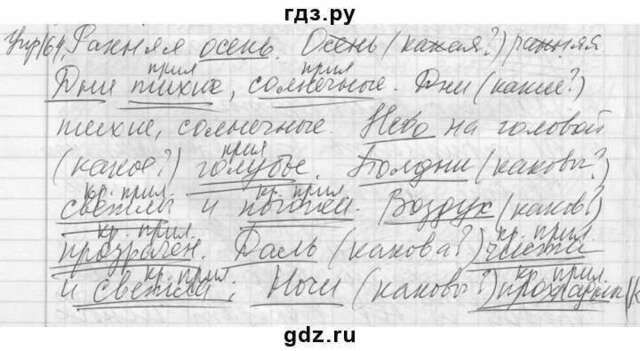 гдз.ру
Упр 164. Ранняя осень. Осень (какая?) ранняя
прил прил
Дни тихие, солнечные. Дни (какие?)
тихие, солнечные. Небо на головой
прил
(какое?) голубое. Полдни (каковы?)
кр. прил. кр. прил.
светлы и погожи. Воздух (каков?)
кр. прил. кр. прил.
прозрачен. Даль (какова?) чиста
кр. прил
и светла; Ночи (каковы?)
кр. прил.
gdz.ru